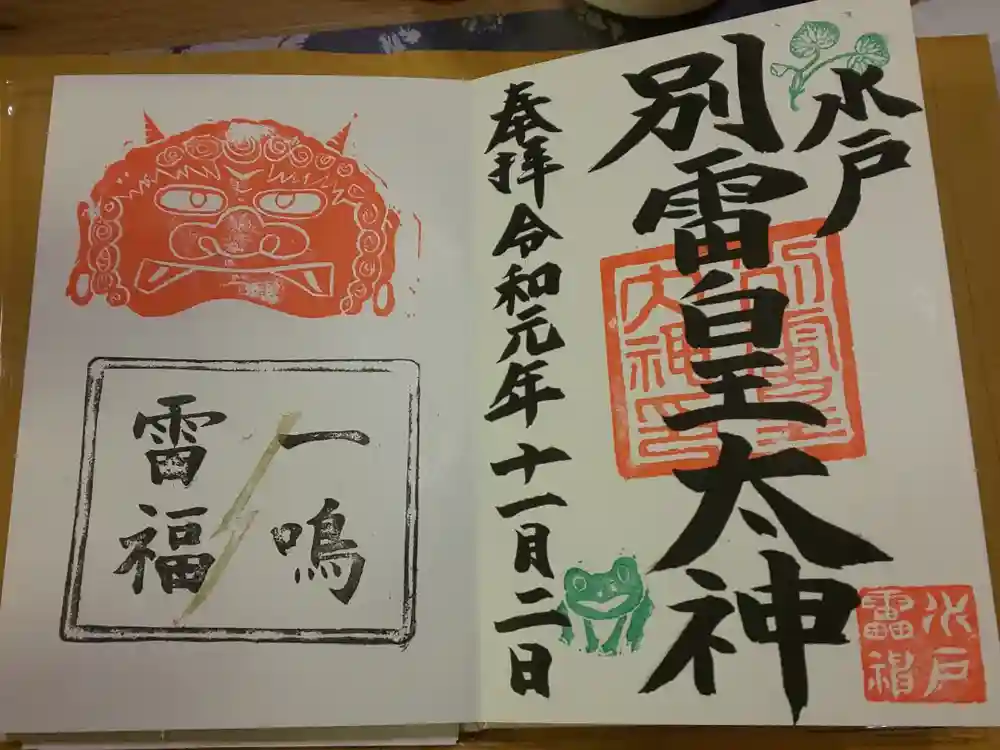 水戸
別雷皇太神
奉拝 令和元年十一月二日
水戸
雷神
一鳴
雷福